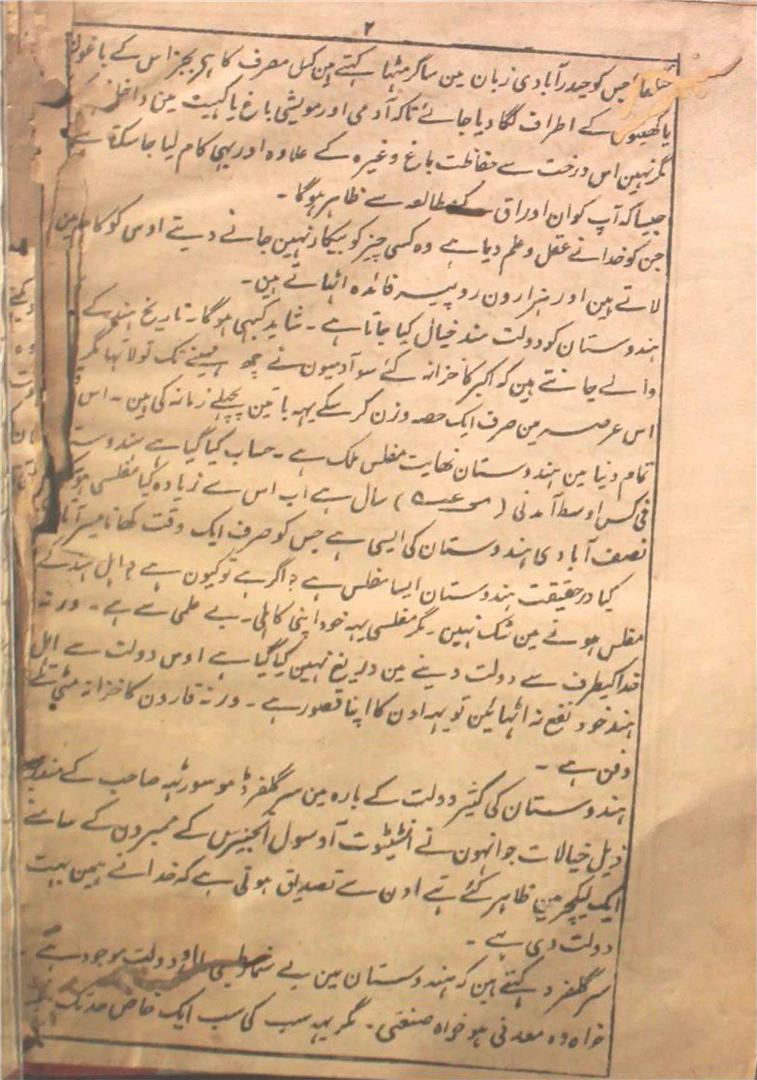 ۲
جس کو حیدرآبادی زبان مین ساگر مٹہا کہتے ہین کس مصرف کا ہی بجز اس کے باغون
یا کھیتوں کے اطراف لگا دیا جائے تاکہ آدمی اور مویشی باغ یا کہیت مین داخل
مگر نہین اس درخت سے حفاظت باغ وغیرہ کے علاوہ اور بہی کام لیا جا سکتا ہے
جیسا کہ آپ کو ان اوراق کے مطالعہ سے ظاہر ہوگا۔
جن کو خدا نے عقل و علم دیا ہے وہ کسی چیز کو بیکار نہین جانے دیتے اوس کو کام مین
لاتے ہین اور ہزارون روپیہ فائدہ اٹہاتے ہین۔
ہندوستان کو دولت مند خیال کیا جاتا ہے۔ شاید کبہی ہوگا۔ تاریخ ہند کے
والے جانتے ہین کہ اکبر کا خزانہ کئے سو آدمیون نے چھ مہینے تک تولا تہا مگر
اس عرصہ مین صرف ایک حصہ وزن کر سکے یہہ باتین پچہلے زمانہ کی ہین۔ اس
تمام دنیا مین ہندوستان نہایت مفلس ملک ہے۔ حساب کیا گیا ہے ہندوستان
فی کس اوسط آمدنی ( ) سال ہے اب اس سے زیادہ کیا مفلسی ہو
نصف آبادی ہندوستان کی ایسی ہے جس کو صرف ایک وقت کھانا میسر آتا
کیا در حقیقت ہندوستان ایسا مفلس ہے؟ اگر ہے تو کیون ہے؟ اہل ہند کے
مفلس ہونے مین شک نہین۔ مگر مفلسی یہہ خود اپنی کاہلی۔ بے علمی سے ہے۔ ورنہ
خدا کیطرف سے دولت دینے مین دریغ نہین کیا گیا ہے اوس دولت سے اہل
ہند خود نفع نہ اٹہائین تو یہہ اون کا اپنا قصور ہے۔ ورنہ قارون کا خزانہ مٹی تلے
دفن ہے۔
ہندوستان کی کثیر دولت کے بارہ مین سر گلفرڈ موسورتہہ صاحب کے مندرجہ
ذیل خیالات جو انہون نے انسٹیٹیوٹ آو سول انجینیرس کے ممبرون کے سامنے
ایک لیکچر مین ظاہر کئے تہے اون سے تصدیق ہوتی ہے کہ خدا نے ہمین بہت
دولت دی ہے۔
سر گلفرڈ کہتے ہین کہ ہندوستان مین بے شمار طبیعی اور دولت موجود ہے
خواہ وہ معدنی ہو خواہ صنعتی۔ مگر یہہ سب کی سب ایک خاص حد تک